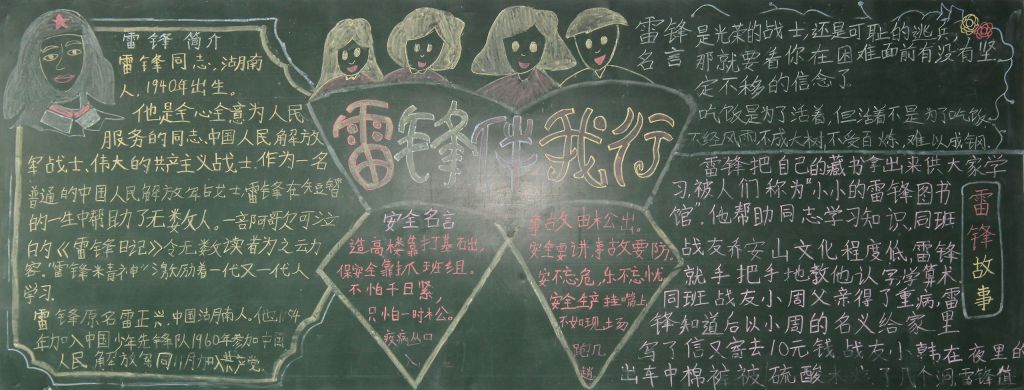 雷锋简介
雷锋同志,湖南
人,1940年出生。
他是全心全意为人民
服务的同志,中国人民解放
军战士,伟大的共产主义战士,作为一名
普通的中国人民解放军战士,雷锋在短暂
的一生中帮助了无数人。一部
的《雷锋日记》令无数读者为之
"雷锋精神"激励着一代又一代人
学习.
雷锋原名雷正兴.中国湖南人.他
年加入中国少年先锋队1960年参加中国
人民解放军同11月加入共产党.
雷锋伴我行
安全名言
造高楼靠打基石出,
保安全靠抓班组.
不怕千日紧,
只怕一时松.
疾病从口
事故由松出.
安全要讲,事故要防,
安不忘危,乐不忘忧
安全生产挂嘴上
不如现场
跑几
趟
雷锋
名言
是光荣的战士,还是可耻的逃兵,
那就要看你在困难面前有没有坚
定不移的信念了
吃饭是为了活着,但活着不是为了吃饭.
不经风雨不成大树,不受百炼,难以成钢.
雷锋故事
雷锋把自己的藏书拿出来供大家学
习.被人们称为"小小的雷锋图书
馆".他帮助同志学习知识.同班
战友乔安山文化程度低,雷锋
就手把手地教他认字,学算术
同班战友小周父亲得了重病,雷
锋知道后以小周的名义给家里
写了信又寄去10元钱.战友小韩在夜里的
出车中棉裤被硫酸水